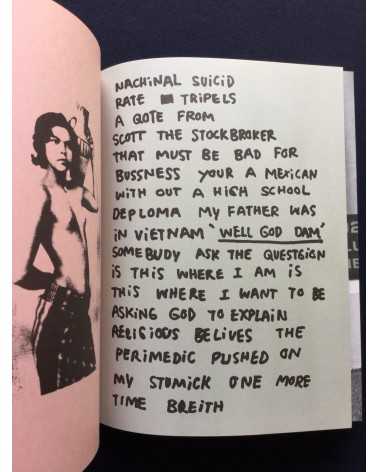 NACHINAL SUICID
RATE TRIPELS
A QOTE FROM
SCOTT THE STOCKBROKER
THAT MUST BE BAD FOR
BUSSNESS YOUR A MEXICAN
WITH OUT A HIGH SCHOOL
DEPLOMA MY FATHER WAS
IN VIETNAM "WELL GOD DAM"
SOMEBUDY ASK THE QUESTGIGN
IS THIS WHERE I AM IS
THIS WHERE I WANT TO BE
ASKING GOD TO EXPLAIN
RELIGIOUS BELIVES THE
PERIMEDIC PUSHED ON
MY STOMICK ONE MORE
TIME BREITH